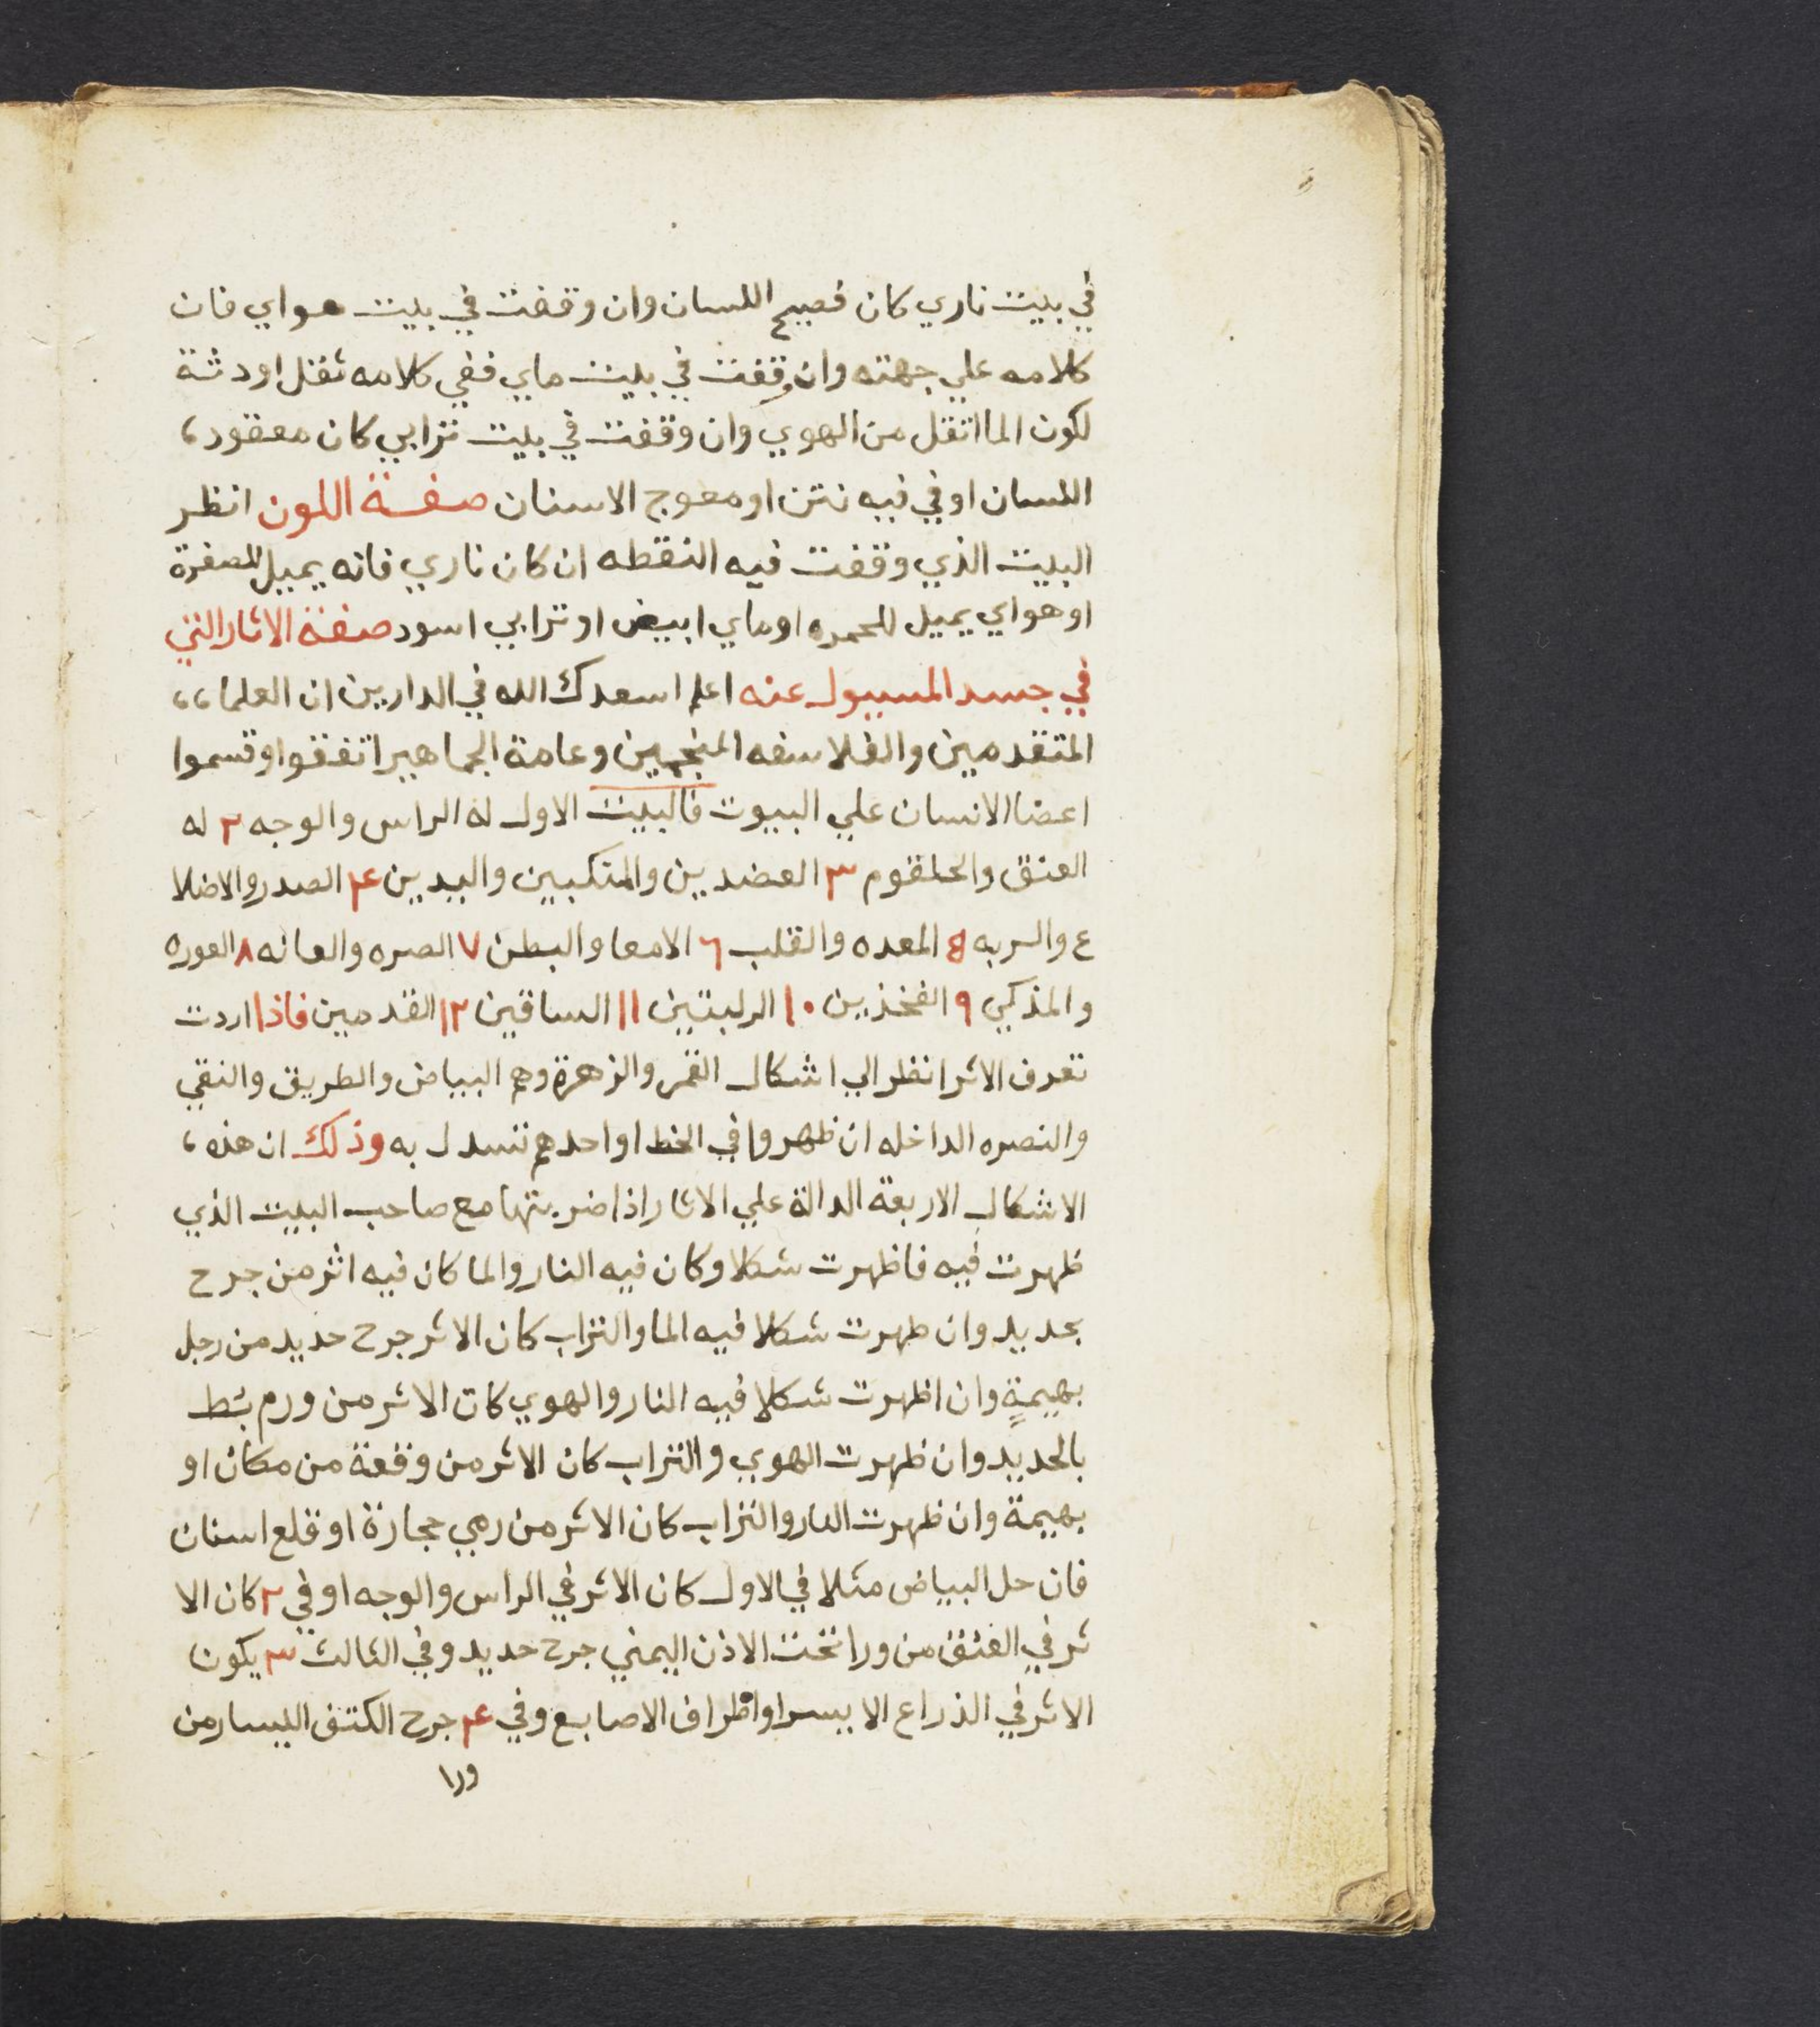 في بيت ناري كان فصيح اللسان وان وقفت في بيت هواي فان
كلامه علي جهته وان وقفت في بيت ماي ففي كلامه ثقل او دثة
لكون الما اثقل من الهوي وان وقفت في بيت ترابي كان معقود،
اللسان او في فيه نتن او معوج الاسنان صفة اللون انظر
البيت الذي وقفت فيه النقطه ان كان ناري فانه يميل للصفرة
او هواي يميل للحمره او ماي ابيض او ترابي اسود صفة الاثار التي
في جسد المسيول عنه اعلم اسعدك الله في الدارين ان العلما،،
المتقدمين والفلاسفه المنجمين وعامة الجماهير اتفقوا وقسموا
اعضا الانسان علي البيوت فالبيت الاول له الراس والوجه ٢ له
العنق والحلقوم ٣ العضدين والمنكبين واليدين ۴ الصدر والاضلا
ع والريه 8 المعده والقلب ٦ الامعا والبطن ٧ الصره والعانه ٨ العوره
والمذكي ٩ الفخذين ١٠ الركبتين ١١ الساقين ١٢ القدمين فاذا اردت
تعرف الاثر انظر الي اشكال القمر والزهرة وهم البياض والطريق والنقي
والنصره الداخله ان ظهروا في الخط او احدهم تستدل به وذلك ان هذه،
الاشكال الاربعة الدالة علي الاثار اذا ضربتها مع صاحب البيت الذي
ظهرت فيه فاظهرت شكلا وكان فيه النار والما كان فيه اثر من جرح
بحديد وان ظهرت شكلا فيه الما والتراب كان الاثر جرح حديد من رجل
بهيمة وان اظهرت شكلا فيه النار والهوي كان الاثر من ورم بُط
بالحديد وان ظهرت الهوي والتراب كان الاثر من وقعة من مكان او
بهيمة وان ظهرت النار والتراب كان الاثر من رمي حجارة او قلع اسنان
فان حل البياض مثلا في الاول كان الاثر في الراس والوجه او في ٢ كان الا
ثر في العنق من ورا تحت الاذن اليمني جرح حديد وفي الثالث ٣ يكون
الاثر في الذراع الايسر او اطراف الاصابع وفي ۴ جرح الكتف اليسار من
ورا